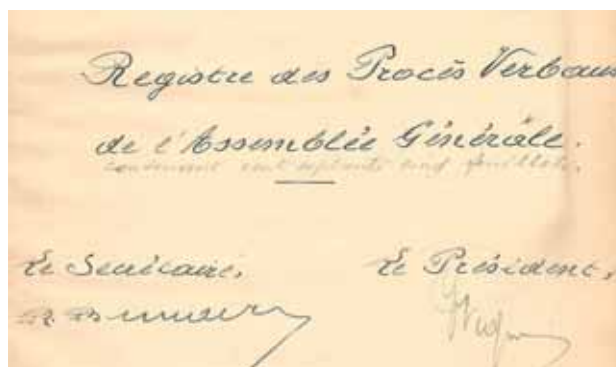 Registre des Procès Verbaux
de l'Assemblée Générale.
contenant cent septante cinq feuillets.
Le Secrétaire, Le Président,